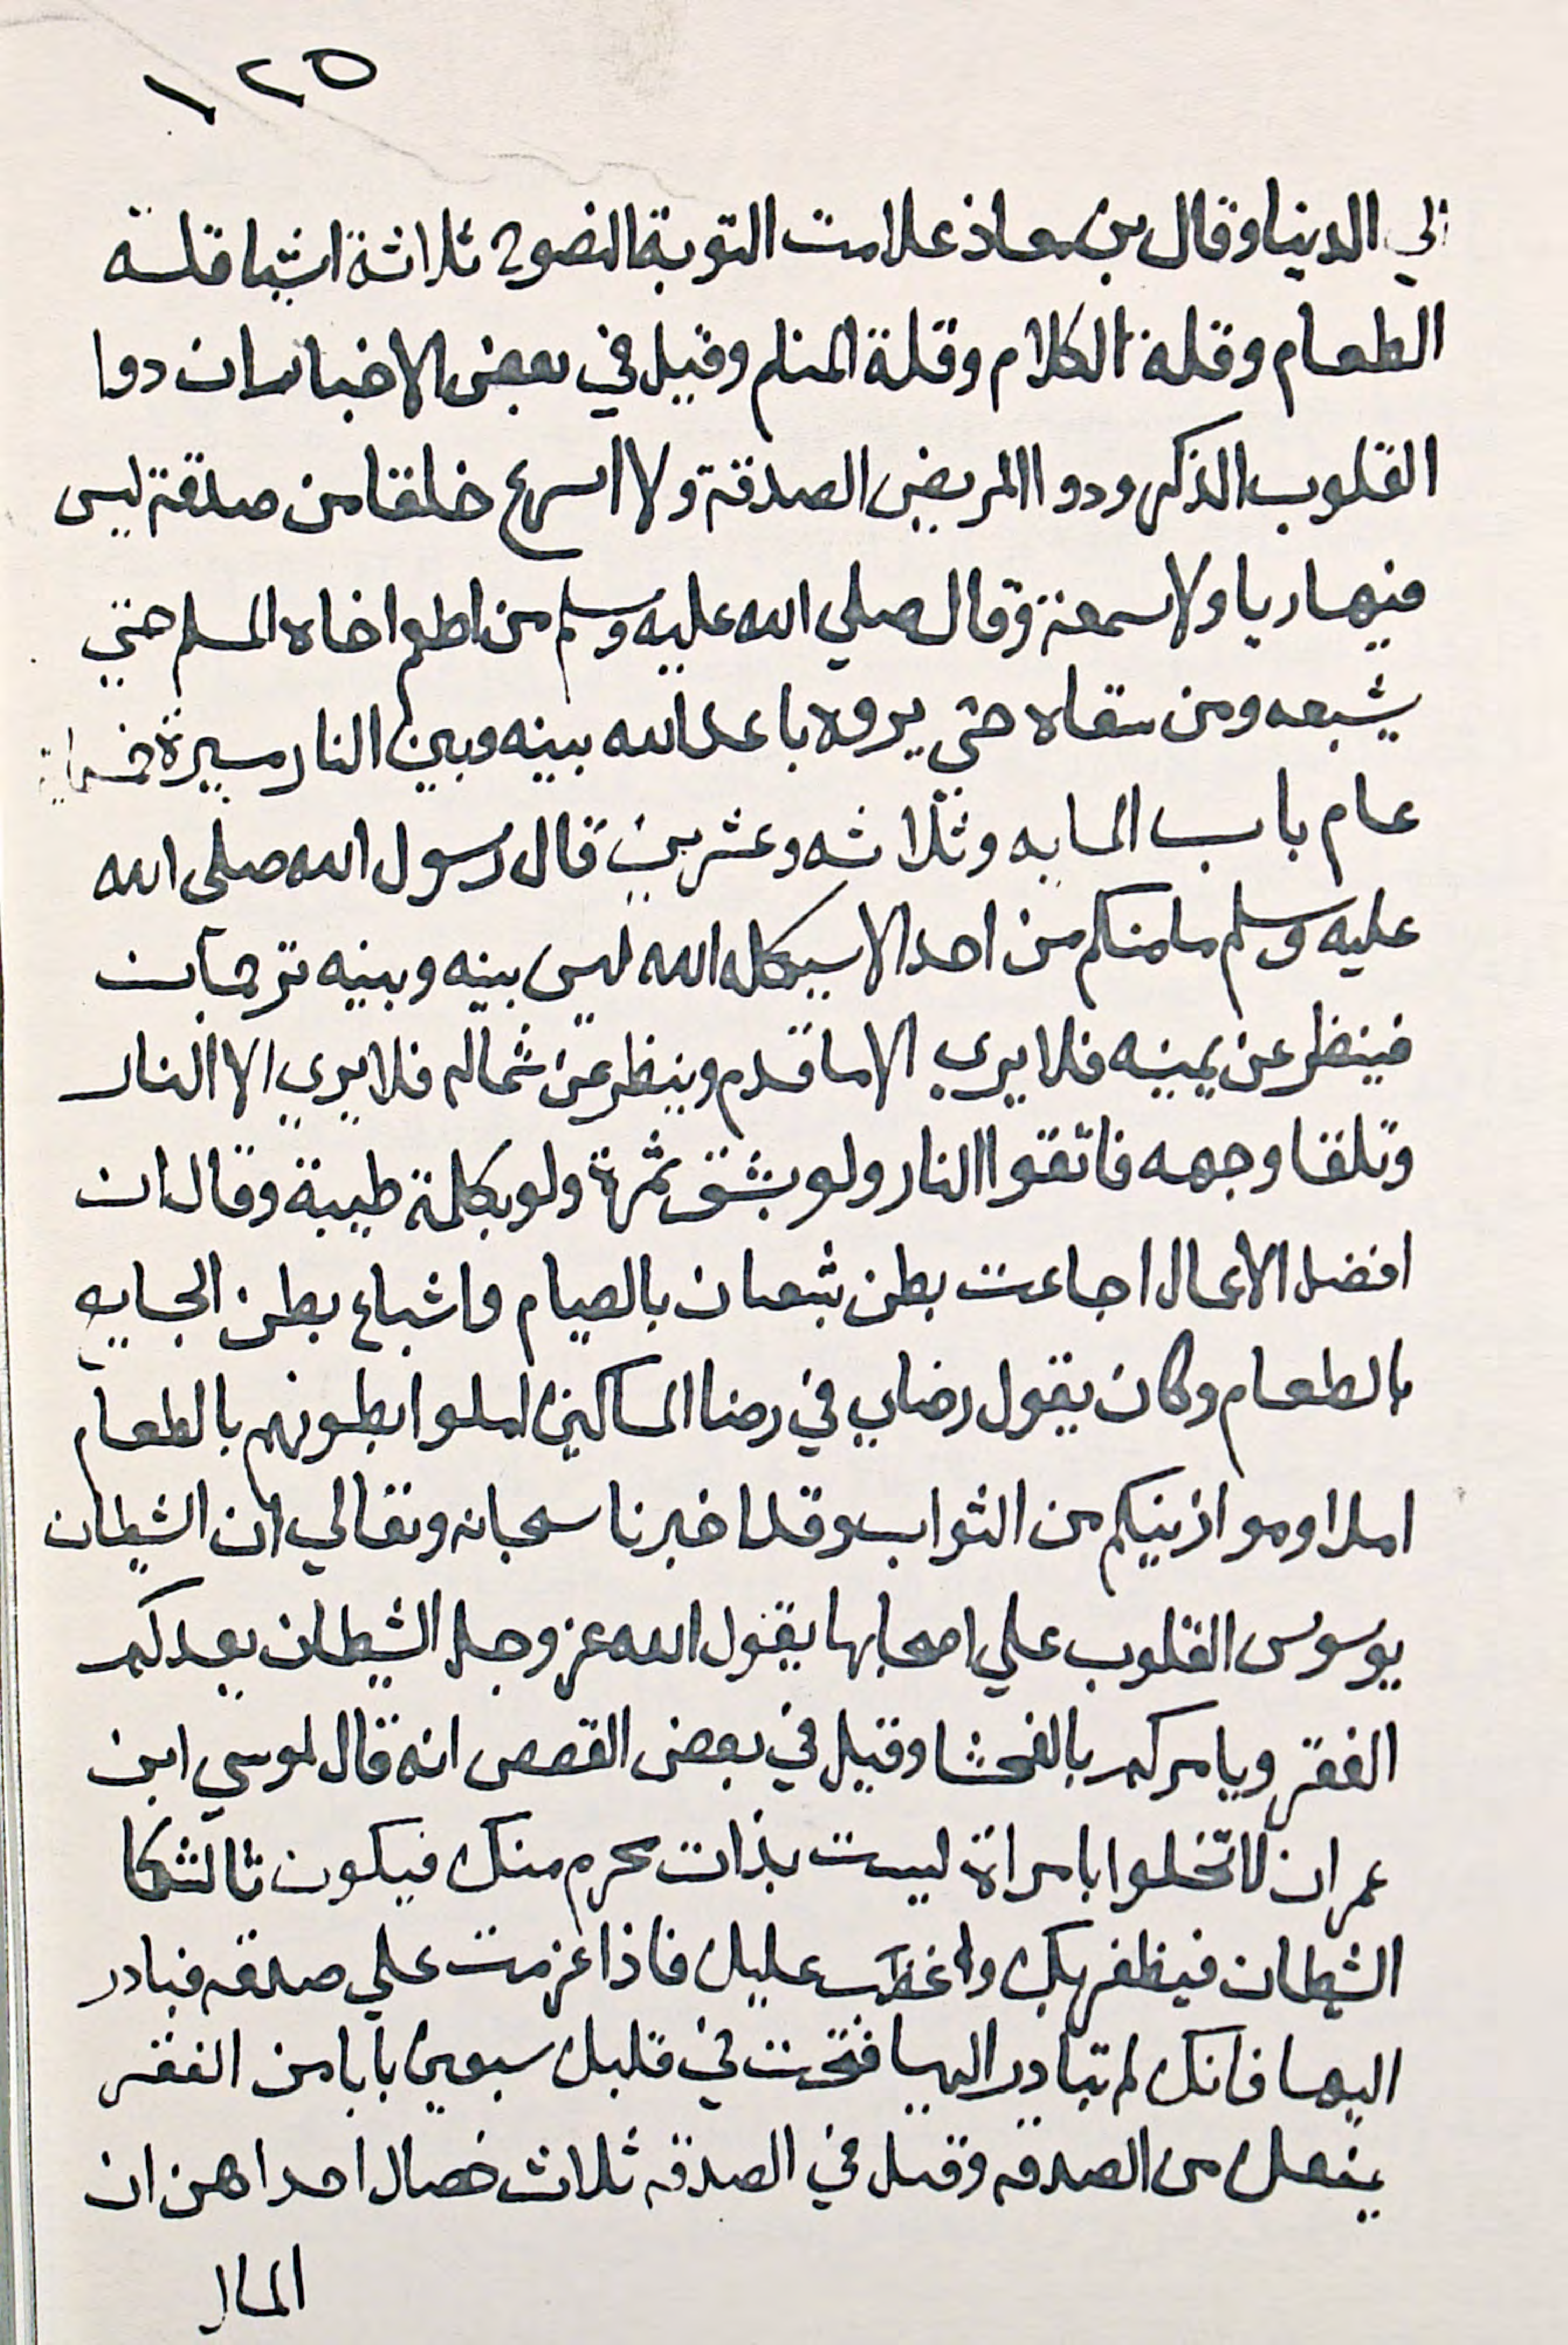 ١٢٥
الي الدنيا وقال بن معاذ علامت التوبة النصوح ثلاثة اشيا قلة
الطعام وقلة الكلام وقلة المنام وقيل في بعض الاخبار ان دوا
القلوب الذكر ودوا المريض الصدقة ولا اسرع خلقا من صدقة ليس
فيها ريا ولا سمعة وقال صلي الله عليه وسلم من اطعم اخاه المسلم حتي
يشبعه ومن سقاه حتي يروه باعد الله بينه وبين النار مسيرة خمسماية
عام باب المايه وثلاثه وعشرين قال رسول الله صلى الله
عليه وسلم ما منكم من احد الا سيكله الله ليس بينه وبينه ترجمان
فينظر عن يمينه فلا يري الا ما قدم وينظر عن شماله فلا يري الا النار
وتلقا وجهه فاتقوا النار ولو بشق تمرة ولو بكلمة طيبة وقال ان
افضل الاعمال اجاعت بطن شبعان بالصيام واشباع بطن الجايع
بالطعام وكان يقول رضاي في رضا المساكين املوا بطونهم بالطعام
املا وموازينكم من الثواب وقد اخبرنا سبحانه وتعالي ان الشيطان
يوسوس القلوب علي اصحابها يقول الله عز وجل الشيطان يعدكم
الفقر ويامركم بالفحشا وقيل في بعض القصص انه قال لموسي ابن
عمران لا تخلوا بامراة ليست بذات محرم منك فيكون ثالثكما
الشيطان فيظفر بك عليك فاذا عزمت علي صدقه فبادر
اليها فانك لم تبادر اليها فتحت في قلبك سبعين بابا من الفقر
يمنعك من الصدقه وقيل في الصدقه ثلاث خصال احداهن ان
المال